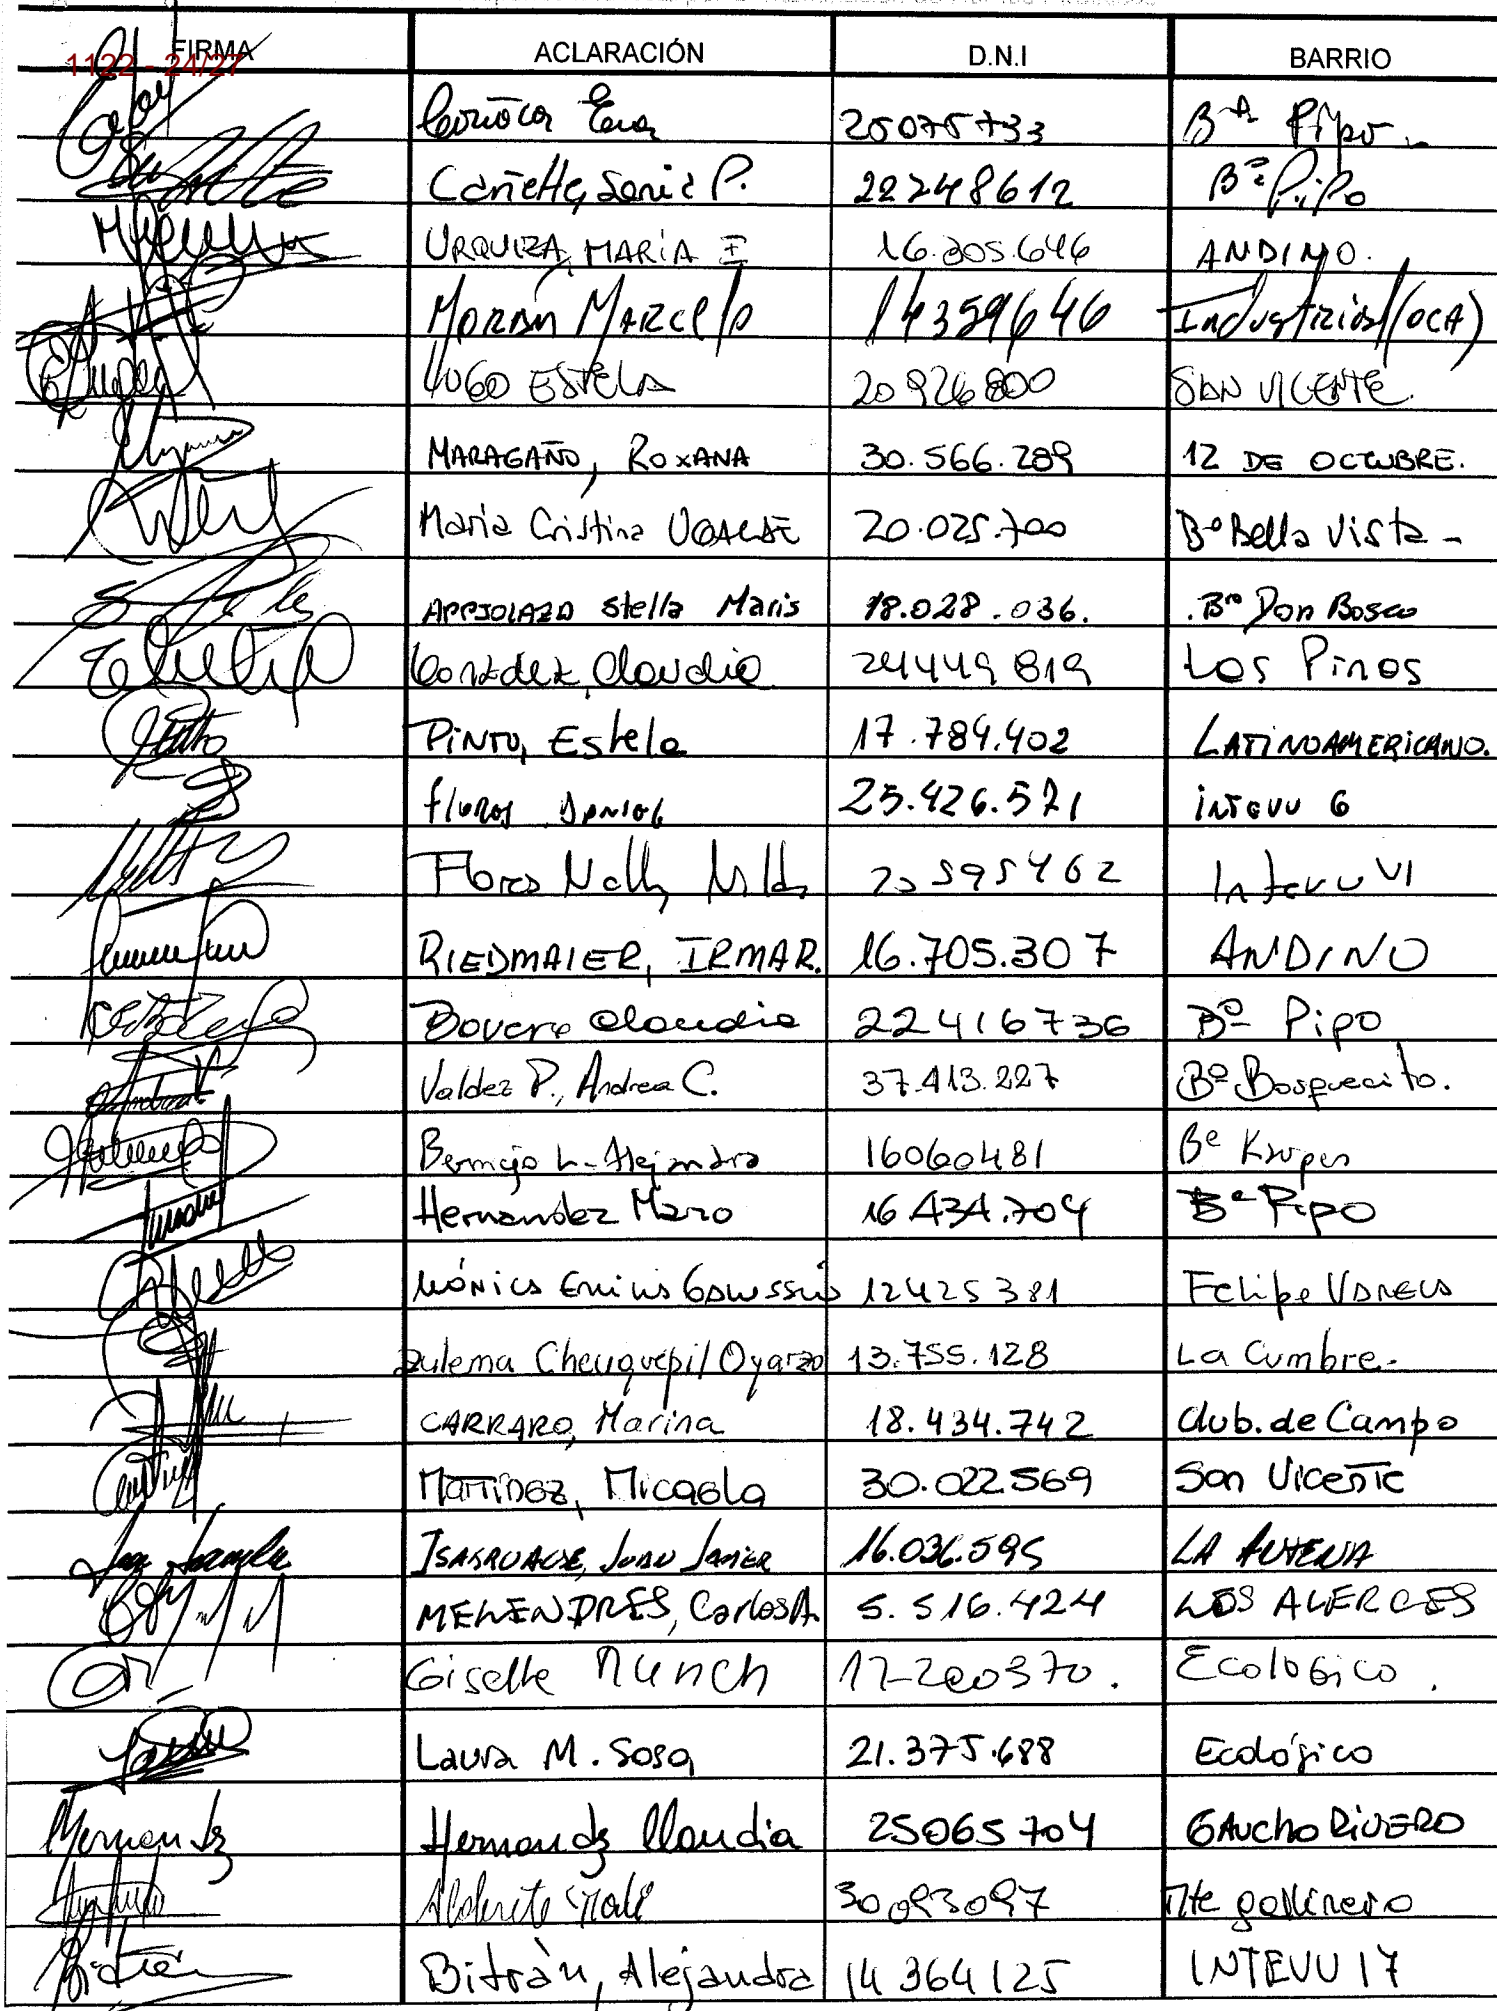 FIRMA ACLARACIÓN D.N.I BARRIO
1122 - 24/27
20075733 Bº Pipo
Cariette, Sonia P. 22248612 Bº Pipo
URQUIZA, MARÍA I 16.205.646 ANDINO.
MORÁN MARCELO 14359646 Industrial (OCA)
LUGO ESTELA 20926800 SAN VICENTE.
MARAGAÑO, ROXANA 30.566.289 12 DE OCTUBRE.
Maria Cristina UGALDE 20.025.700 Bº Bella Vista -
Stella Maris 18.028.036. Bº Don Bosco
González, Claudia 24449819 Los Pinos
PINTO, Estela 17.784.402 LATINOAMERICANO.
Flores Daniel 25.426.571 intevu 6
Flores Nelly Nilda 20595462 Intevu VI
RIEDMAIER, IRMA R. 16.705.307 ANDINO
Bovere Claudia 22416736 Bº Pipo
Valdez P., Andrea C. 37.413.227 Bº Bosquecito.
Bermejo L. Alejandra 16060481 Bº Kaupen
Hernandez Mario 16.434.704 Bº Pipo
MÓNICA Emilia 12425381 Felipe VARELA
Zulema Cheuquepil Oyarzo 13.755.128 La Cumbre.
CARRARO, Marina 18.434.742 Club. de Campo
MARTINEZ, Micaela 30.022.569 San Vicente
JUAN JAVIER 16.036.595 LA
MELENDRES, Carlos A. 5.516.424 LOS ALERCES
Giselle Munch 17200370. Ecologico.
Laura M. Sosa 21.375.688 Ecológico
Hernandez Claudia 25065704 GAUCHO RIVERO
Alderete 30093097 Mte gallinero
Bitrán, Alejandra 14364125 INTEVU 17